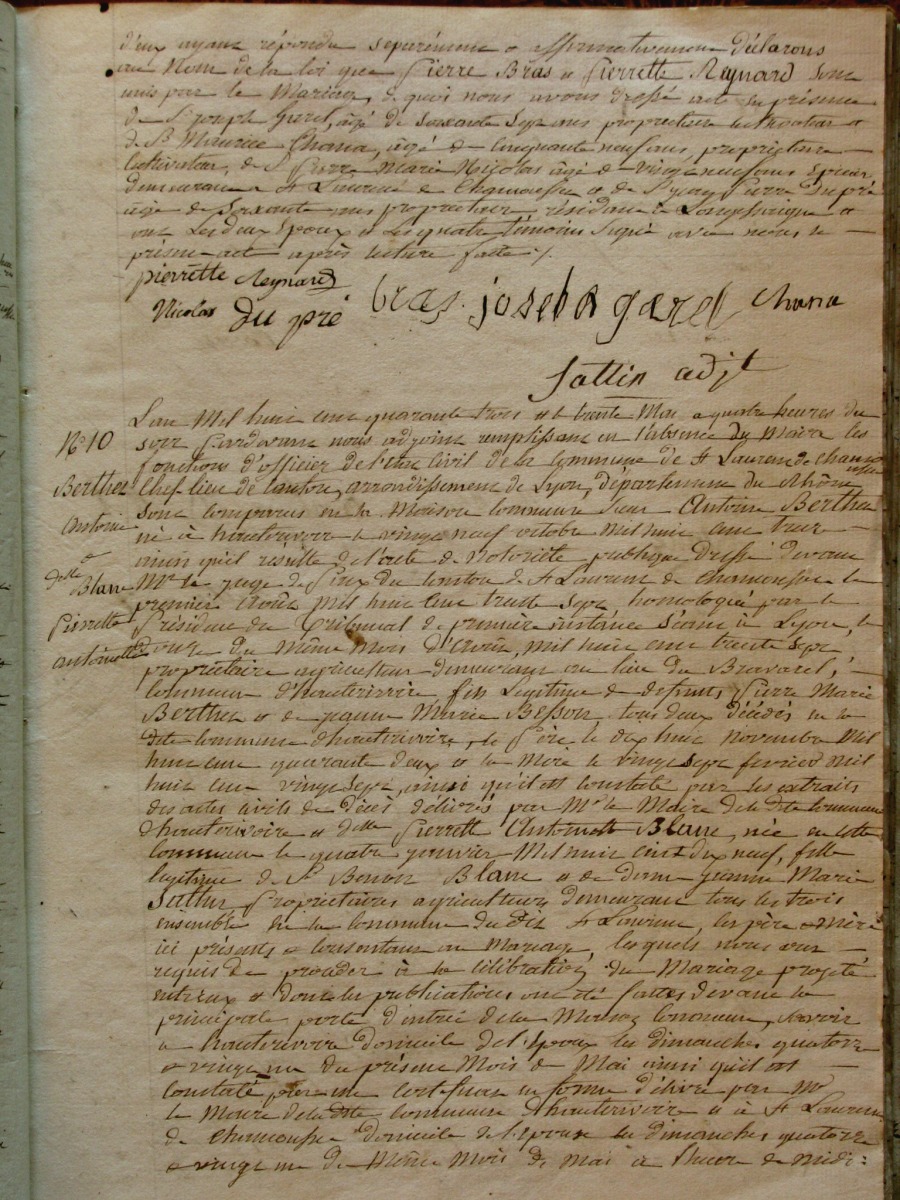 d'eux ayant répondu séparément & affirmativement Déclarons
au Nom de la loi que Pierre Bras & Pierrette Reynard sont
unis par le Mariage, de quoi nous avons dressé acte en présence
de Sr Joseph Garel, âgé de soixante sept ans propriétaire cultivateur &
de Sr Maurice Chana, âgé de cinquante neuf ans, propriétaire
cultivateur, de Sr Pierre Marie Nicolas âgé de vingt neuf ans épicier
demeurant à St Laurent de Chamousset & de Sr Pierre Dupré
âgé de soixante ans propriétaire résidant à Longessaigne &
ont les deux époux & les quatre témoins signé avec nous le
présent acte après lecture faite ./.
pierrette Reynard
Nicolas du pré bras joseph garel Chana
Sattin adjt
L'an Mil huit cent quarante trois & le trente Mai à quatre heures du
No 10
soir Pardevant nous adjoint remplissant en l'absence du Maire les
fonctions d'officier de l'état civil de la commune de St Laurent de chamousset
Berthet
Chef-lieu de canton, arrondissement de Lyon, département du Rhône
Antoine
sont comparus en la Maison commune Sieur Antoine Berthet
né à hauterivoire le vingt neuf octobre Mil huit cent treize
ainsi qu'il résulte de l'acte de Notoriété publique Dressé devant
& delle
Blanc
Mr le juge de Paix du canton de St Laurent de Chamousset le
Pierrette
premier Août Mil huit cent trente sept homologué par le
Président du Tribunal de première instance séant à Lyon, le
antoinette
onze du Même Mois d'Août, Mil huit cent trente sept
propriétaire agriculteur demeurant au lieu du Bravarel,
commune d'hauterivoire fils Légitime de défunts Pierre Marie
Berthet & de jeanne Marie Besson, tous deux décédés en la
dite commune d'hauterivoire, le Père le dix huit Novembre Mil
huit cent quarante deux & la Mère le vingt sept février Mil
huit cent vingt sept, ainsi qu'il est constaté par les extraits
des actes civils de décès délivrés par Mr le Maire de la dite commune
d'hauterivoire & delle Pierrette Antoinette Blanc, née en cette
commune le quatre janvier Mil huit cent dix neuf, fille
légitime de Sr Benoit Blanc & de dame Jeanne Marie
Propriétaires agriculteurs demeurant tous les trois
ensemble en la commune du dit St Laurent, les père & mère
ici présents & consentant au Mariage, les quels nous ont
requis de procéder à la célébration du Mariage projeté
entr'eux & dont les publications ont été faites devant la
principale porte d'entrée de la Maison Commune, savoir
à hauterivoire domicile de l'époux les dimanches quatorze
& vingt un du présent Mois de Mai ainsi qu'il est
constaté par un certificat en forme délivré par Mr
le Maire de la dite commune d'hauterivoire & à St Laurent
de Chamousset domicile de l'épouse les dimanches quatorze
& vingt un du Même Mois de mai à l'heure de midi :